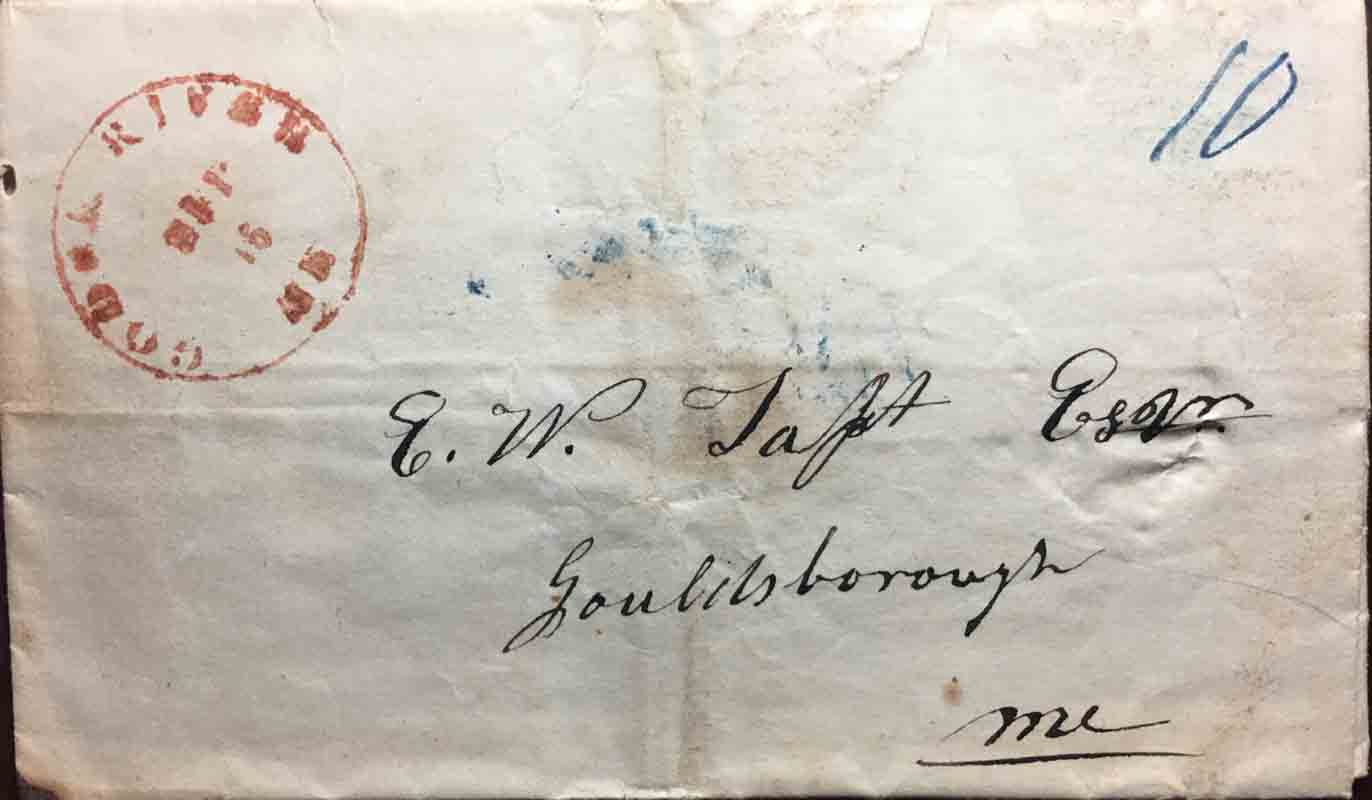 RIVER ME
SEP.
16
10
E. W. Taft Esqr.
Gouldsborough
me